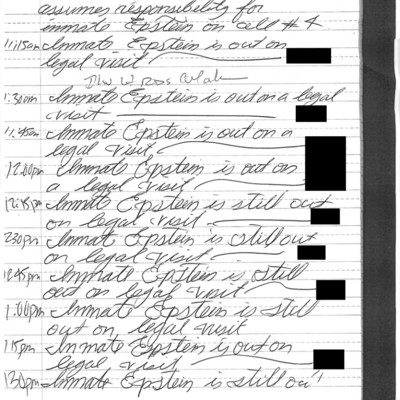 assumes responsibility for
inmate Epstein on cell #4
11:15am Inmate Epstein is out on
legal visit
1:30am Inmate Epstein is out on a legal
visit
11:45am Inmate Epstein is out on a
legal visit
12:00pm Inmate Epstein is out on
a legal visit
12:15pm Inmate Epstein is still out
on legal visit
230pm Inmate Epstein is still out
on legal visit
12:45pm Inmate Epstein is still
out on legal visit
1:00pm Inmate Epstein is still
out on legal visit
1:15pm Inmate Epstein is out on
legal visit
1:30pm Inmate Epstein is still out